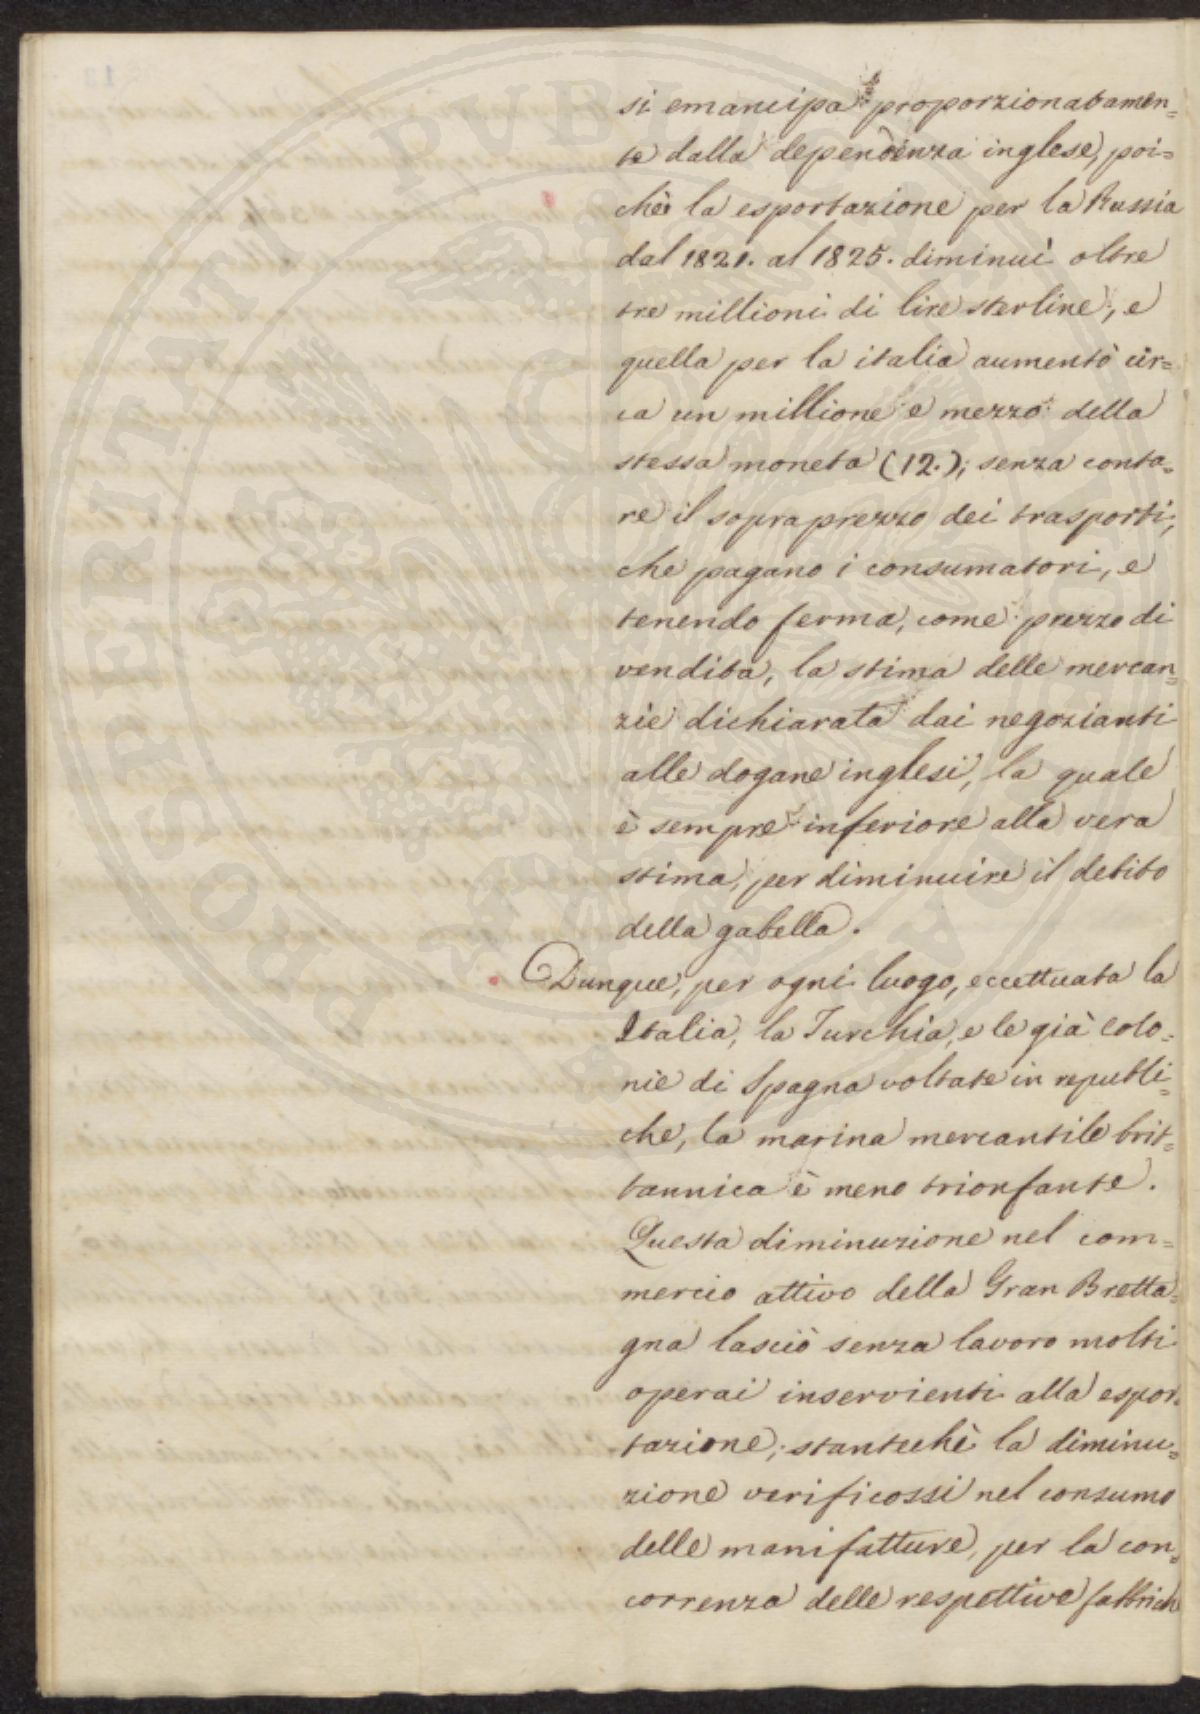 si emancipa proporzionatamen=
te dalla dependenza inglese, poi=
chè la esportazione per la Russia
dal 1821. al 1825. diminuì oltre
tre millioni di lire sterline; e
quella per la italia aumentò cir=
ca un millione e mezzo della
stessa moneta (12.); senza conta=
re il sopraprezzo dei trasporti,
che pagano i consumatori, e
tenendo ferma, come prezzo di
vendita, la stima delle mercan=
zie dichiarata dai negozianti
alle dogane inglesi, la quale
è sempre inferiore alla vera
stima, per diminuire il debito
della gabella.
Dunque, per ogni luogo, eccettuata la
Italia, la Turchia, e le già colo=
nie di Spagna voltate in republi=
che, la marina mercantile brit=
tannica è meno trionfante.
Questa diminuzione nel com=
mercio attivo della Gran Bretta=
gna lasciò senza lavoro molti
operai inservienti alla espor=
tazione; stantechè la diminu=
zione verificossi nel consumo
delle manifatture, per la con=
correnza delle respettive fabbriche
PROSPERITATI PUBLICAE